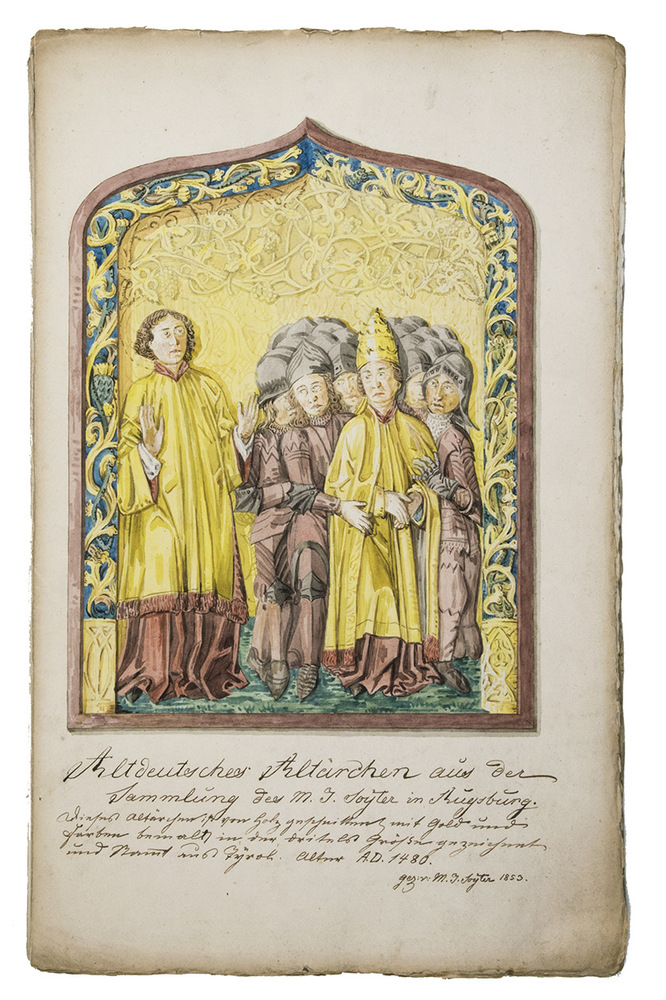 Altdeutsches Altärchen aus der
Sammlung des M. J. Soÿter in Augsburg.
Dieses Altärchen ist von Holz geschnitzt mit Gold und
Farben bemalt, in der drittels Größe gezeichnet
und stamt aus Tÿrol. Alter A.D. 1480.
gez. v. M. J. Soÿter 1853.